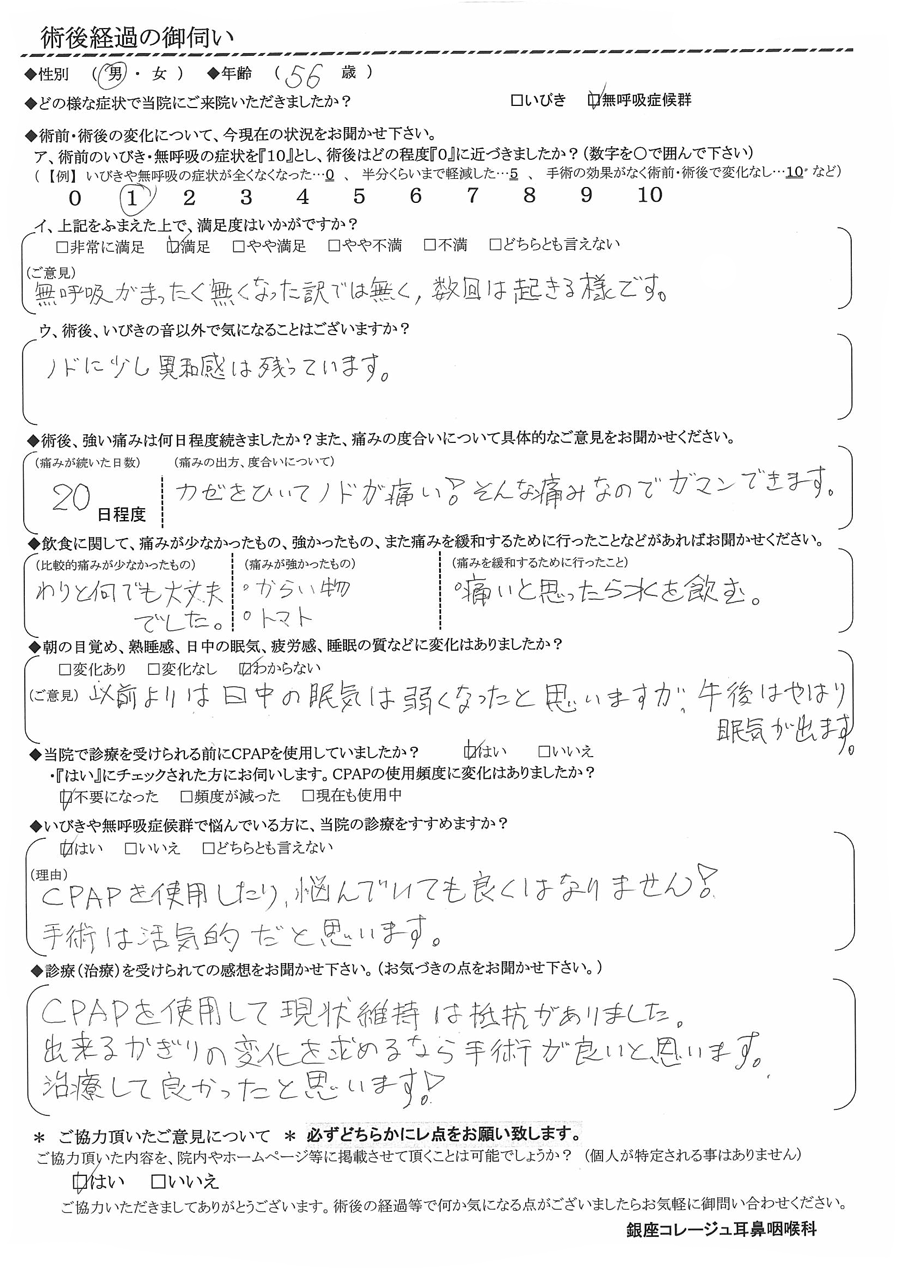 術後経過の御伺い
◆性別 （ 男 ・ 女 ） ◆年齢 （ 56 歳 ）
◆どの様な症状で当院にご来院いただきましたか？ □いびき ☑無呼吸症候群
◆術前・術後の変化について、今現在の状況をお聞かせ下さい。
ア、術前のいびき・無呼吸の症状を『10』とし、術後はどの程度『0』に近づきましたか？（数字を〇で囲んで下さい）
（ 【例】 いびきや無呼吸の症状が全くなくなった…0 、 半分くらいまで軽減した…5 、 手術の効果がなく術前・術後で変化なし…10 など）
0 1 2 3 4 5 6 7 8 9 10
イ、上記をふまえた上で、満足度はいかがですか？
□非常に満足 ☑満足 □やや満足 □やや不満 □不満 □どちらとも言えない
（ご意見）
無呼吸がまったく無くなった訳では無く，数回は起きる様です。
ウ、術後、いびきの音以外で気になることはございますか？
ノドに少し異和感は残っています。
◆術後、強い痛みは何日程度続きましたか？また、痛みの度合いについて具体的なご意見をお聞かせください。
（痛みが続いた日数） （痛みの出方、度合いについて）
20 日程度 カゼをひいてノドが痛い！そんな痛みなのでガマンできます。
◆飲食に関して、痛みが少なかったもの、強かったもの、また痛みを緩和するために行ったことなどがあればお聞かせください。
（比較的痛みが少なかったもの） （痛みが強かったもの） （痛みを緩和するために行ったこと）
わりと何でも大丈夫 ○からい物 ○痛いと思ったら水を飲む。
でした。 ○トマト
◆朝の目覚め、熟睡感、日中の眠気、疲労感、睡眠の質などに変化はありましたか？
□変化あり □変化なし ☑わからない
（ご意見） 以前よりは日中の眠気は弱くなったと思いますが、午後はやはり
眠気が出ます。
◆当院で診療を受けられる前にCPAPを使用していましたか？ ☑はい □いいえ
・『はい』にチェックされた方にお伺いします。CPAPの使用頻度に変化はありましたか？
☑不要になった □頻度が減った □現在も使用中
◆いびきや無呼吸症候群で悩んでいる方に、当院の診療をすすめますか？
☑はい □いいえ □どちらとも言えない
（理由）
CPAPを使用したり、悩んでいても良くはなりません！
手術は活気的だと思います。
◆診療（治療）を受けられての感想をお聞かせ下さい。（お気づきの点をお聞かせ下さい。）
CPAPを使用して現状維持は抵抗がありました。
出来るかぎりの変化を求めるなら手術が良いと思います。
治療して良かったと思います！
＊ ご協力頂いたご意見について ＊ 必ずどちらかにレ点をお願い致します。
ご協力頂いた内容を、院内やホームページ等に掲載させて頂くことは可能でしょうか？ （個人が特定される事はありません）
☑はい □いいえ
ご協力いただきましてありがとうございます。術後の経過等で何か気になる点がございましたらお気軽に御問い合わせください。
銀座コレージュ耳鼻咽喉科